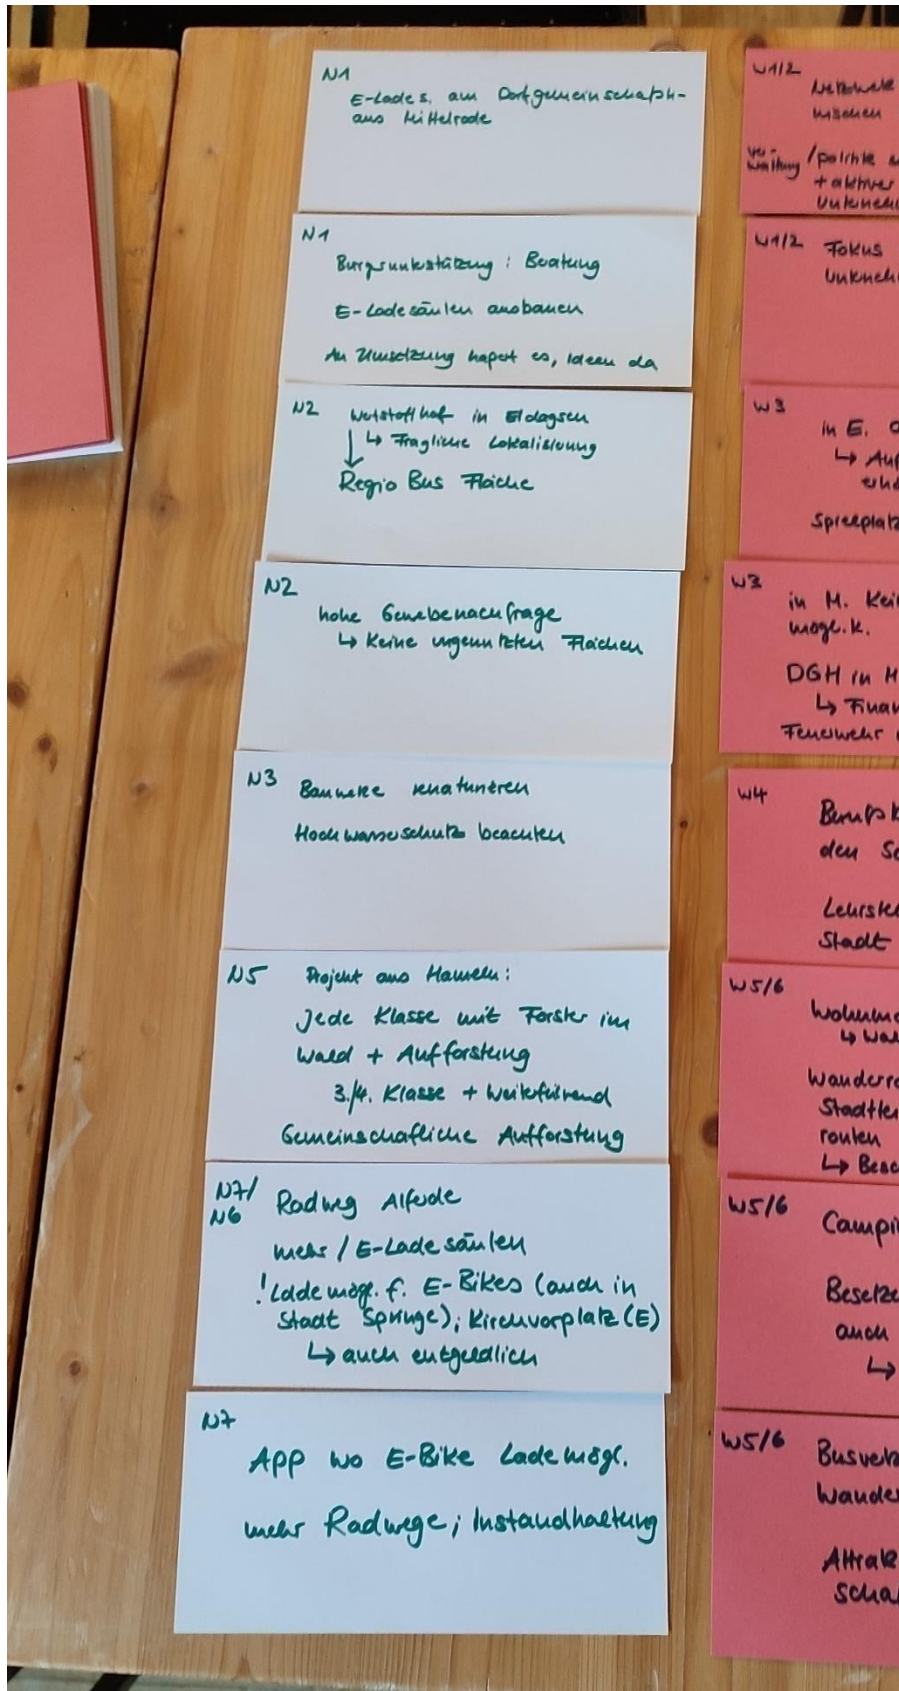 N1
E-Lades. am Dorfgemeinschafts-
aus Mittelrode
N1
Bürgerunterstützung: Beratung
E-Ladesäulen ausbauen
An Umsetzung hapert es, Ideen da
N2 Wertstoffhof in Eldagsen
↳ Fragliche Lokalisierung
↓
Regio Bus Fläche
N2
hohe Gewerbenachfrage
↳ Keine ungenutzten Flächen
N3 Bauwerke renaturieren
Hochwasserschutz beachten
N5 Projekt aus Hameln:
Jede Klasse mit Förster im
Wald + Aufforstung
3./4. Klasse + Weiterführend
Gemeinschaftliche Aufforstung
N7/
N6 Radweg Alferde
mehr / E-Ladesäulen
! Lademögl. f. E-Bikes (auch in
Stadt Springe); Kirchvorplatz (E)
↳ auch entgeldlich
N7
App wo E-Bike Lademögl.
mehr Radwege; Instandhaltung
W1/2
Netzwerk
/ Politik
+ aktiver
W1/2 Fokus
W3
in E.
↳
W3
in M. Kei
mögl.k.
DGH in M
↳ Finan
Feuerwehr
W4
den Sc
Stadt
W5/6
↳
routen
↳ Besc
W5/6
Campi
auch
↳
W5/6
Wander
Attrak